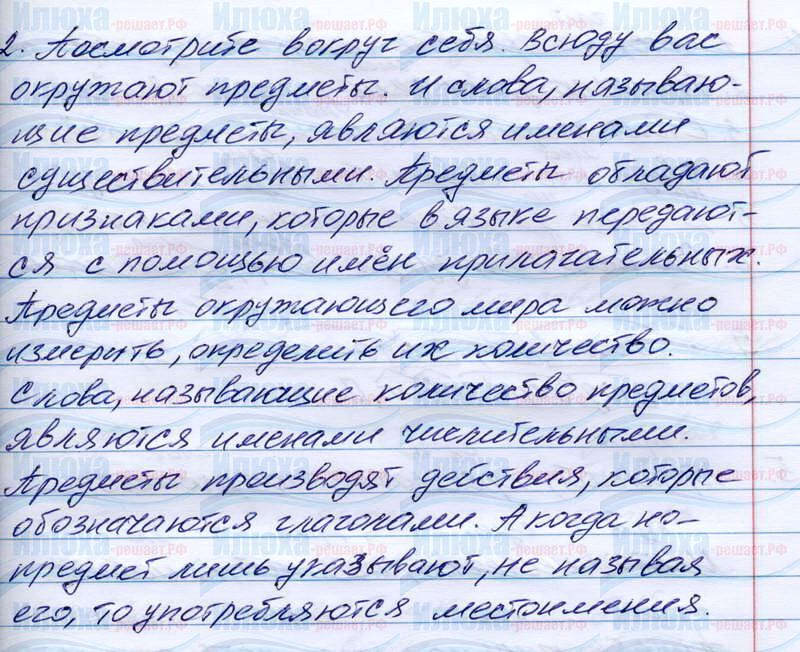 2. Посмотрите вокруг себя. Всюду вас
окружают предметы. И слова, называю-
щие предметы, являются именами
существительными. Предметы обладают
признаками, которые в языке передают-
ся с помощью имён прилагательных.
Предметы окружающего мира можно
измерить, определить их количество.
Слова, называющие количество предметов,
являются именами числительными.
Предметы производят действия, которые
обозначаются глаголами. А когда но-
предмет лишь указывают, не называя
его, то употребляются местоимения.